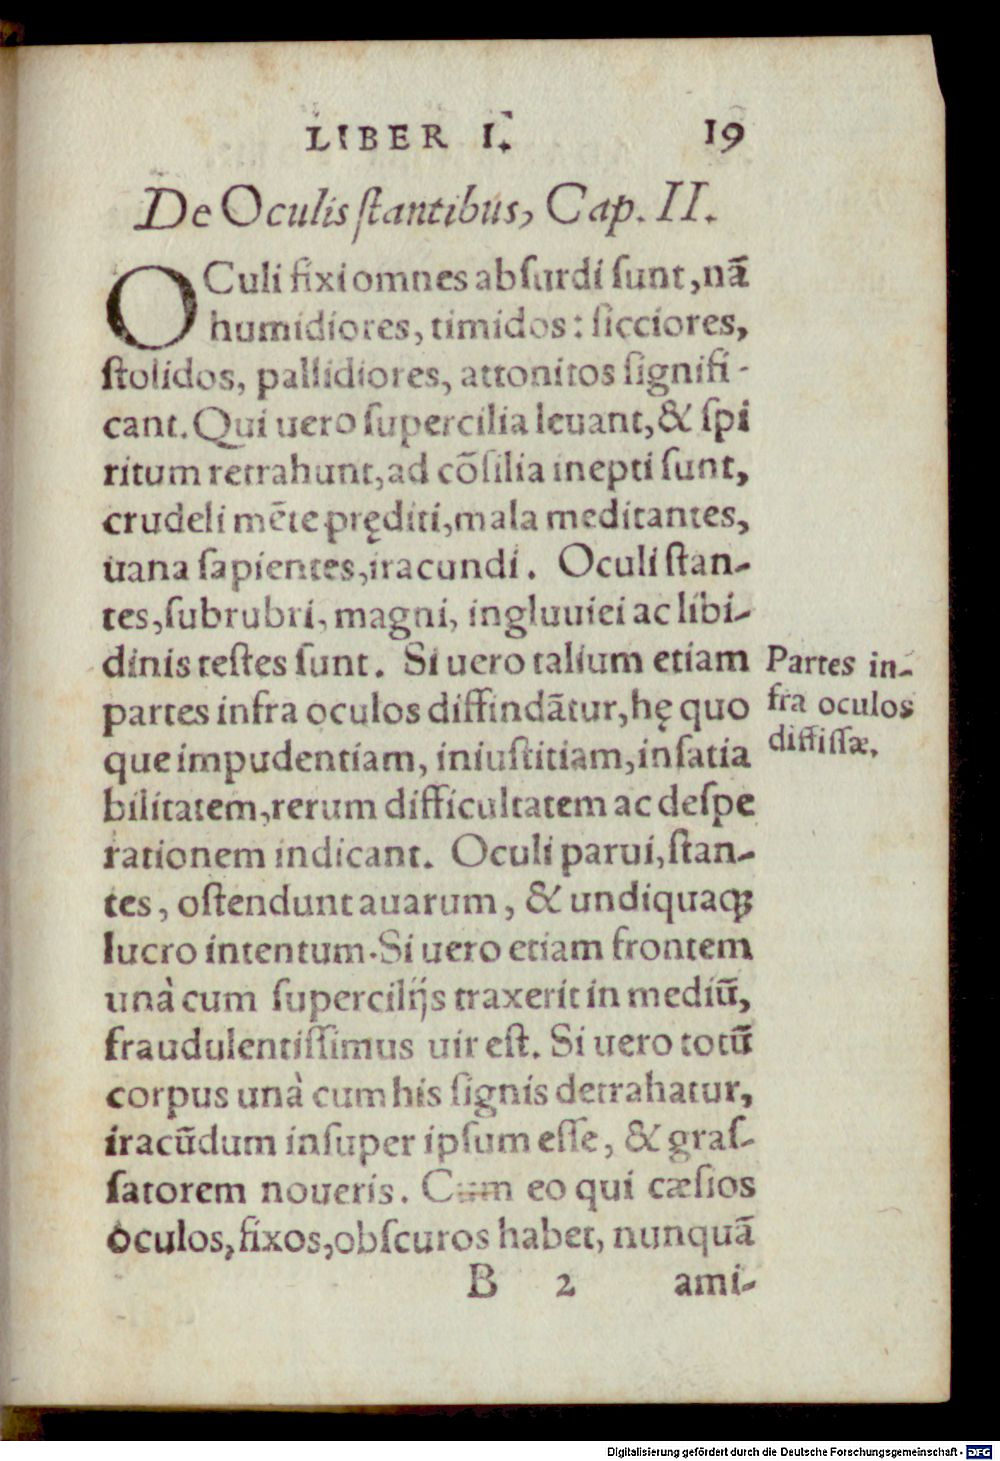 LIBER I.
19
De Oculis ſtantibus, Cap. II.
OCuli fixi omnes abſurdi ſunt, nā
humidiores, timidos: ſicciores,
ſtolidos, pallidiores, attonitos ſignifi-
cant. Qui uero ſupercilia leuant, & ſpi
ritum retrahunt, ad cōſilia inepti ſunt,
crudeli mēte pręditi, mala meditantes,
uana ſapientes, iracundi. Oculi ſtan-
tes, ſubrubri, magni, ingluuiei ac libi-
dinis teſtes ſunt. Si uero talium etiam
partes infra oculos diffindātur, hę quo
que impudentiam, iniuſtitiam, inſatia
bilitatem, rerum difficultatem ac deſpe
rationem indicant. Oculi parui, ſtan-
tes, oſtendunt auarum, & undiquaqꝫ
lucro intentum. Si uero etiam frontem
unà cum ſupercilijs traxerit in mediū,
fraudulentiſſimus uir eſt. Si uero totū
corpus unà cum his ſignis detrahatur,
iracūdum inſuper ipſum eſſe, & graſ-
ſatorem noueris. Cum eo qui cæſios
oculos, fixos, obſcuros habet, nunquā
B 2 ami-
Partes in-
fra oculos
diffiſſæ.
Digitalisierung gefördert durch die Deutsche Forschungsgemeinschaft - DFG